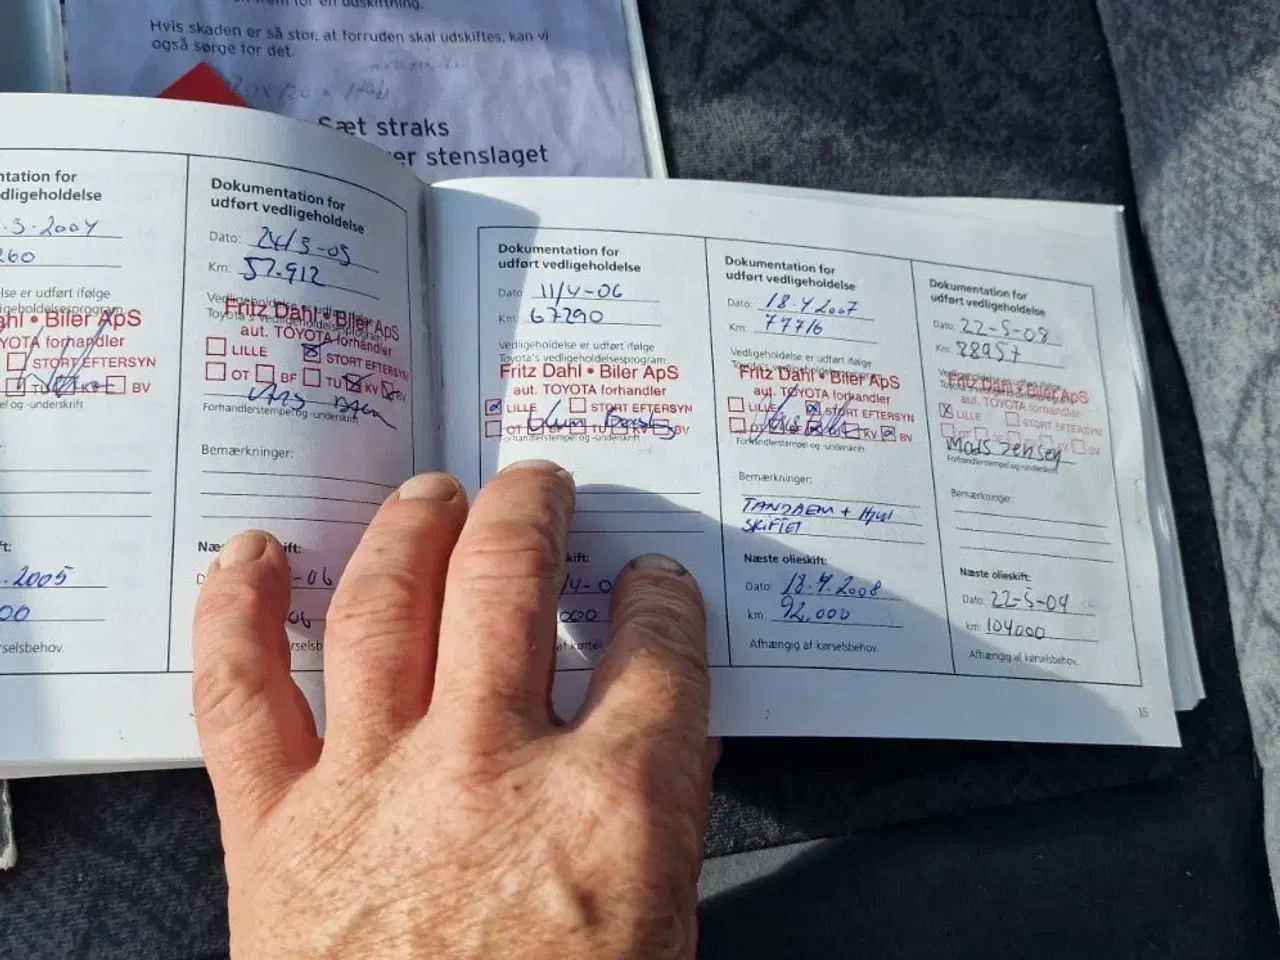 en udskiftning.
Hvis skaden er så stor, at forruden skal udskiftes, kan vi
også sørge for det.
Sæt straks
er stenslaget
ntation for
dligeholdelse
.3.2004
260
lse er udført ifølge
igeholdelsesprogram
ahl • Biler ApS
YOTA forhandler
STORT EFTERSYN
BV
pel og -underskrift
t:
.2005
00
rselsbehov.
Dokumentation for
udført vedligeholdelse
Dato: 24/3-05
Km: 57.912
Vedligeholdelse er udført ifølge
Toyota's vedligeholdelsesprogram
Fritz Dahl • Biler ApS
aut. TOYOTA forhandler
LILLE STORT EFTERSYN
OT BF TU KV BV
Forhandlerstempel og -underskrift
Bemærkninger:
Næ ift:
D -06
06
rselsb
Dokumentation for
udført vedligeholdelse
Dato 11/4-06
Km: 67290
Vedligeholdelse er udført ifølge
Toyota's vedligeholdelsesprogram
Fritz Dahl • Biler ApS
aut. TOYOTA forhandler
LILLE STORT EFTERSYN
OT BF TU KV BV
Forhandlerstempel og -underskrift
kift:
/4-0
000
af kørsel
Dokumentation for
udført vedligeholdelse
Dato: 18.4.2007
Km: 77716
Vedligeholdelse er udført ifølge
Fritz Dahl • Biler ApS
aut. TOYOTA forhandler
LILLE STORT EFTERSYN
OT KV BV
Forhandlerstempel og -underskrift
Bemærkninger:
TANDREM + Hjul
SKIFTET
Næste olieskift:
Dato: 18.4.2008
km: 92.000
Afhængig af kørselsbehov.
Dokumentation for
udført vedligeholdelse
Dato: 22-5-08
Km: 88957
Vedligeholdelse er udført ifølge
Fritz Dahl • Biler ApS
aut. TOYOTA forhandler
LILLE STORT EFTERSYN
OT BV
Mads Jensen
Forhandlerstempel og -underskrift
Bemærkninger:
Næste olieskift:
Dato: 22-5-09
km: 104000
Afhængig af kørselsbehov.
15